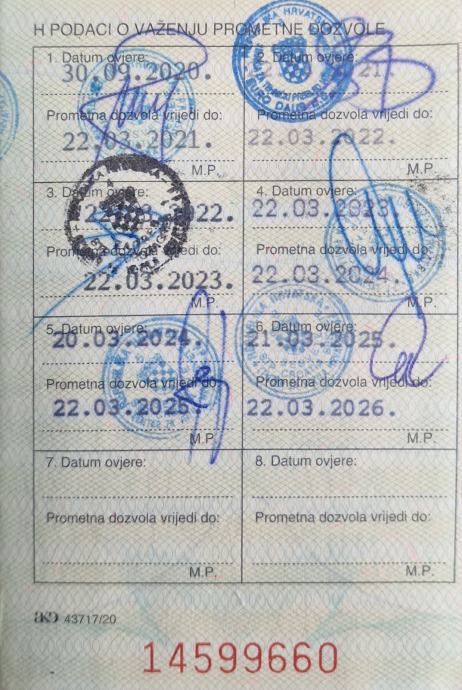 H PODACI O VAŽENJU PROMETNE DOZVOLE
1. Datum ovjere:
30.09.2020.
Prometna dozvola vrijedi do:
22.03.2021.
M.P.
2. Datum ovjere:
21.
Prometna dozvola vrijedi do:
22.03.2022.
M.P.
3. Datum ovjere:
2022.
Prometna dozvola vrijedi do:
22.03.2023.
M.P.
4. Datum ovjere:
22.03.2023
Prometna dozvola vrijedi do:
22.03.2024.
M.P.
5. Datum ovjere:
20.03.2024.
Prometna dozvola vrijedi do:
22.03.2025.
M.P.
6. Datum ovjere:
21.03.2025.
Prometna dozvola vrijedi do:
22.03.2026.
M.P.
7. Datum ovjere:
Prometna dozvola vrijedi do:
M.P.
8. Datum ovjere:
Prometna dozvola vrijedi do:
M.P.
AKD 43717/20
14599660